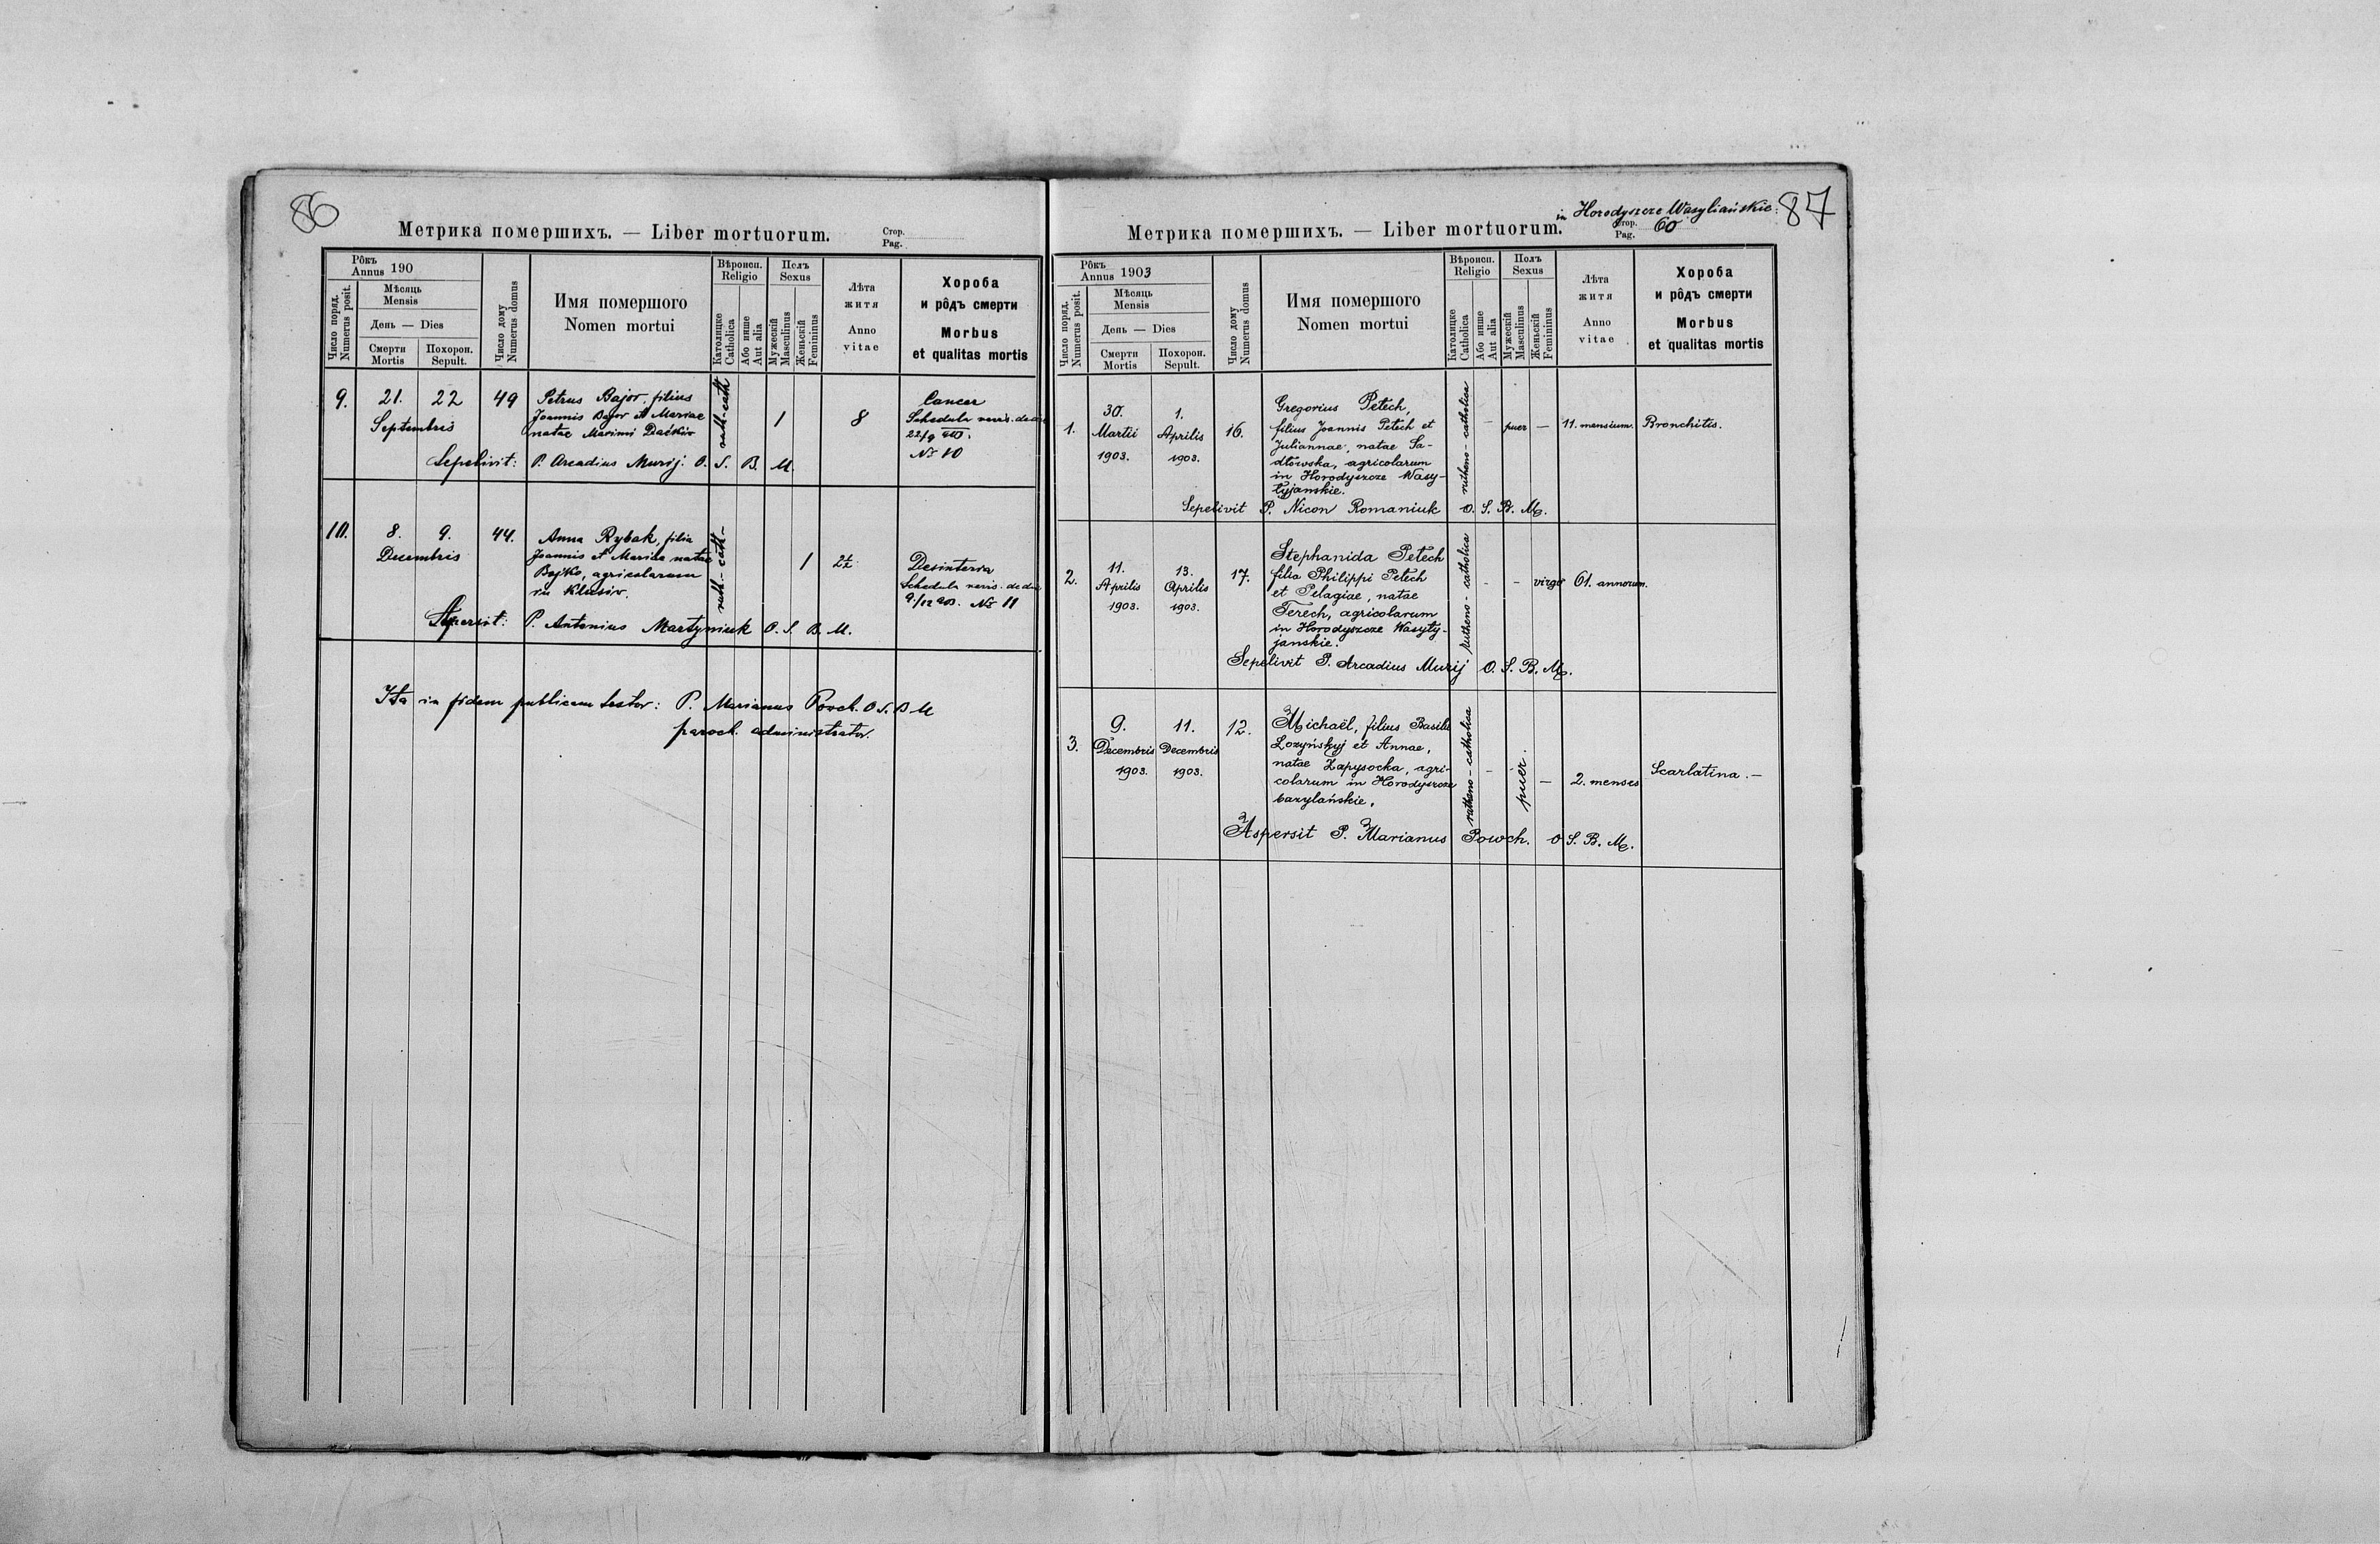 86
Метрика помершихъ. — Liber mortuorum.
Стор.
Pag.
Рôкъ
Annus 190
Число поряд.
Numerus posit.
Мѣсяць
Mensis
День — Dies
Смерти
Mortis
Похорон.
Sepult.
Число дому
Numerus domus
Имя помершого
Nomen mortui
Вѣроисп.
Religio
Католицке
Catholica
Або инше
Aut alia
Полъ
Sexus
Мужескій
Masculinus
Женьскій
Femininus
Лѣта
житя
Anno
vitae
Хороба
и рôдъ смерти
Morbus
et qualitas mortis
9.
21. 22
Septembris
49
Petrus Bajor, filius
Joannis Bajor et Mariae
natae Maximi
ruth-cath
1
8
Cancer
Schedula
22/9
№ 10
Sepelivit: P. Arcadius Murij. O. S. B. M.
10.
8. 9.
Decembris
44.
Anna Rybak, filia
Joannis et Mariae natae
Bojko, agricolarum
in Klusiv.
ruth-cath-
1
2½
Desinteria
Schedula
9/12 903. № 11
Aspersit: P. Antonius Martyniuk O. S. B. M.
Ita in fidem publicam testor: P. Marianus Powch. O S. B M
paroch. administrator.
in Horodyszcze Wasyliańskie.
87
Метрика помершихъ. — Liber mortuorum.
Стор.
Pag. 60
Рôкъ
Annus 1903
Число поряд.
Numerus posit.
Мѣсяць
Mensis
День — Dies
Смерти
Mortis
Похорон.
Sepult.
Число дому
Numerus domus
Имя помершого
Nomen mortui
Вѣроисп.
Religio
Католицке
Catholica
Або инше
Aut alia
Полъ
Sexus
Мужескій
Masculinus
Женьскій
Femininus
Лѣта
житя
Anno
vitae
Хороба
и рôдъ смерти
Morbus
et qualitas mortis
1.
30.
Martii
1903.
1.
Aprilis
1903.
16.
Gregorius Petech,
filius Joannis Petech et
Juliannae, natae Sa-
dłowska, agricolarum
in Horodyszcze Wasy-
tyjanskie.
rutheno-catholica
-
puer
—
11. mensium.
Bronchitis.
Sepelivit P. Nicon Romaniuk O. S. B. M.
2.
11.
Aprilis
1903.
13.
Aprilis
1903.
17.
Stephanida Petech
filia Philippi Petech
et Pelagiae, natae
Terech, agricolarum
in Horodyszcze Wasyty-
janskie.
rutheno-catholica
-
-
virgo
61. annorum.
Sepelivit P. Arcadius Murij O. S. B. M.
3.
9.
Decembris
1903.
11.
Decembris
1903.
12.
Michaël, filius Basilii
Łozyńskyj et Annae,
natae Zapysocka, agri-
colarum in Horodyszcze
bazylańskie.
rutheno-catholica
-
puer.
—
2. menses
Scarlatina. —
Aspersit P. Marianus Powch. O S. B. M.